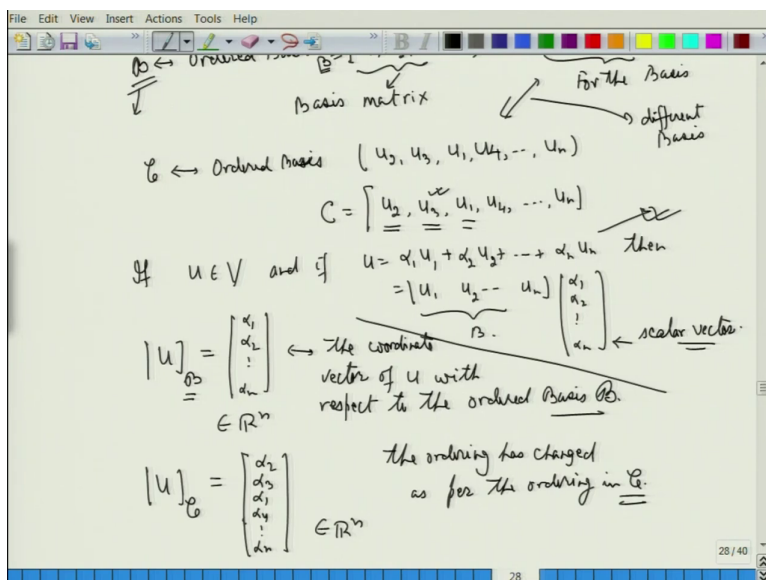 File Edit View Insert Actions Tools Help
B ↔ Ordered
Basis matrix
For the Basis
different Basis
C ↔ Ordered Basis (u₂, u₃, u₁, u₄, ..., uₙ)
C = [u₂, u₃, u₁, u₄, ..., uₙ]
If u ∈ V and if u = α₁u₁ + α₂u₂ + --- + αₙuₙ then
= [u₁ u₂ --- uₙ] [α₁ α₂ ⋮ αₙ] ← scalar vector.
B.
[u]_B = [α₁ α₂ ⋮ αₙ] ↔ the coordinate
vector of u with
respect to the ordered Basis B.
∈ ℝⁿ
[u]_C = [α₂ α₃ α₁ α₄ ⋮ αₙ] ∈ ℝⁿ
the ordering has changed
as per the ordering in C.
28 / 40
28